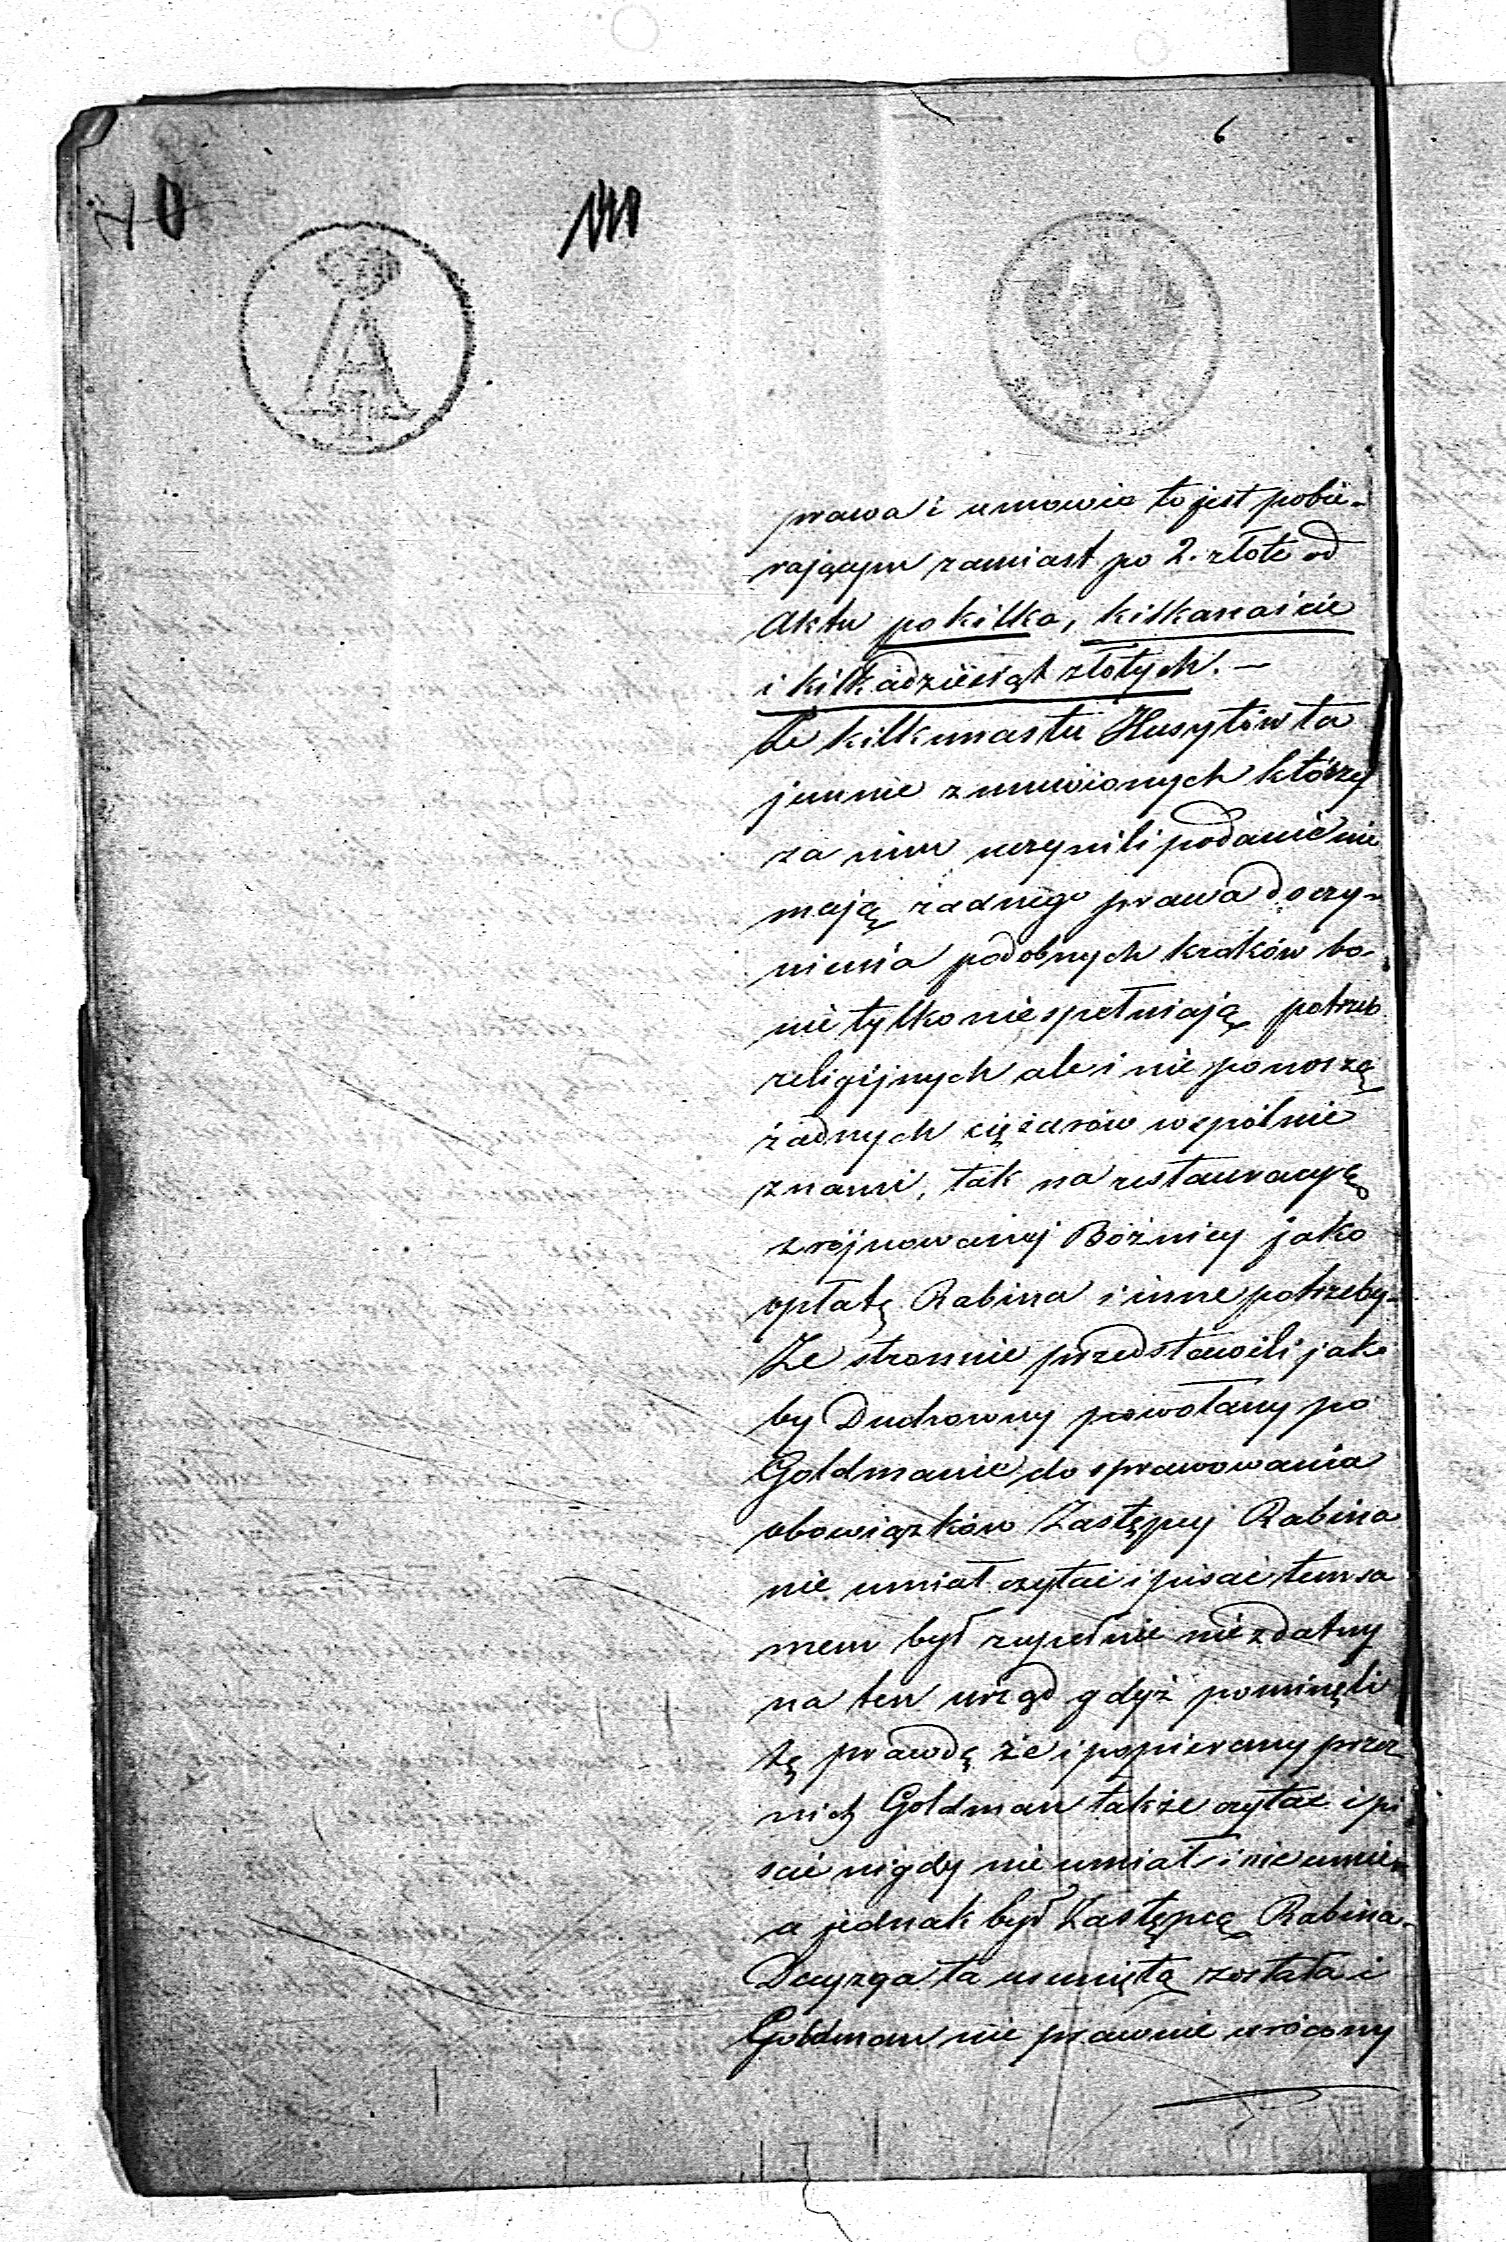 6
prawa i umowie to jest pobie-
rającym zamiast po 2. złote od
Aktu po kilka, kilkanaście
i kilkadziesiąt złotych. —
Że kilkunastu Husytów ta
jemnie zmuwionych którzy
za nim uczynili podanie nie
mają żadnego prawa do czy-
nienia podobnych kroków bo-
nie tylko nie spełniają potrzeb
religijnych ale i nie ponoszą
żadnych ciężarów wspólnie
z nami, tak na restauracyę
zrójnowanej Bożnicy jako
opłatę Rabina i inne potrzeby.
Że stronnie przedstawili jako
by Duchowny powołany po
Goldmanie do sprawowania
obowiązków Zastępcy Rabina
nie umiał czytać i pisać temsa
mem był zupełnie niezdatny
na ten urząd gdyż pominęli
tę prawdę że i popierany przez
nich Goldman także czytać i pi
sać nigdy nie umiał i nie umie-
a jednak był Zastępcą Rabina-
Decyzya ta usuniętą została i
Goldman nie prawnie wrócony